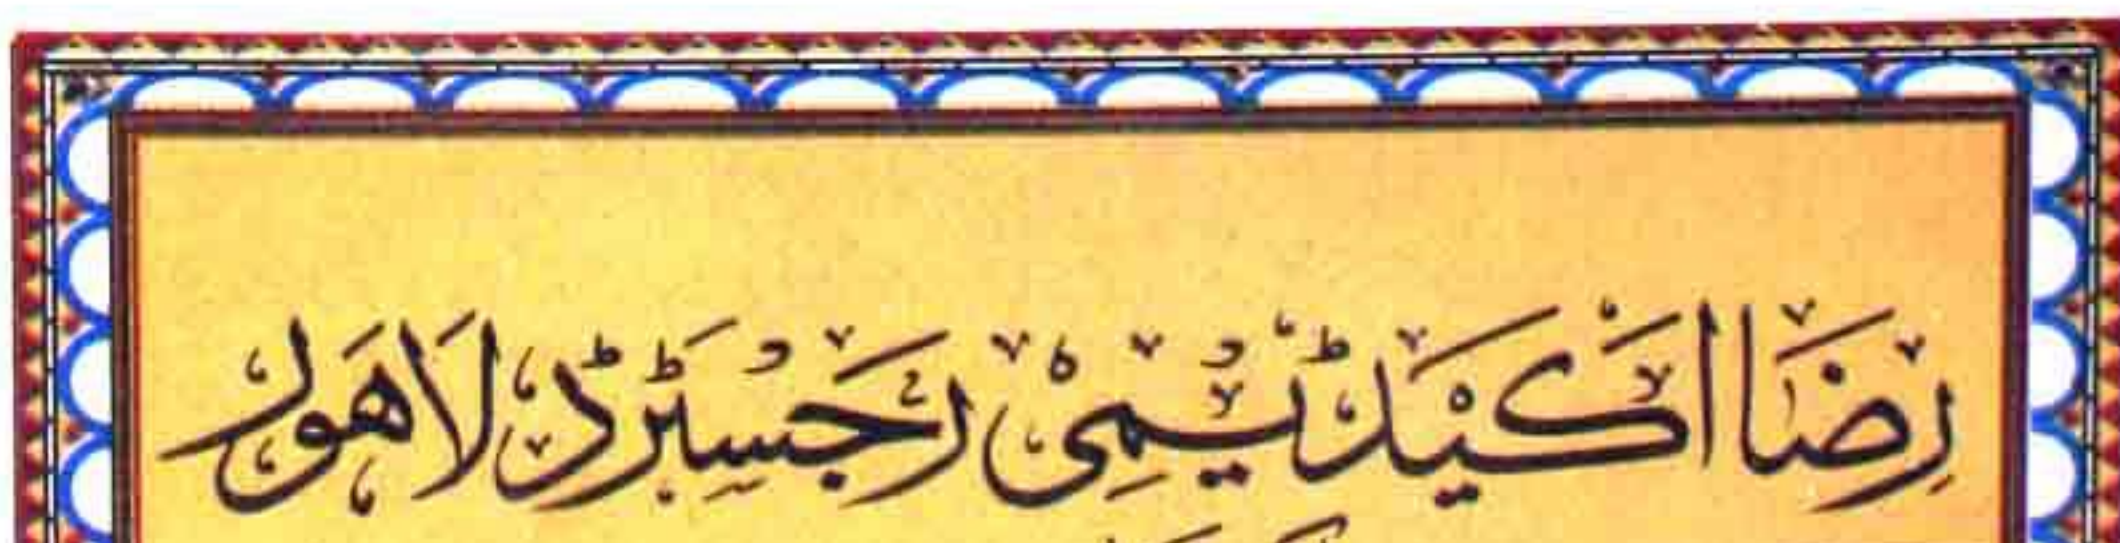 رِضَا اَکَیْڈَیْمِیْ رَجِسْٹَرْڈ لَاھَور